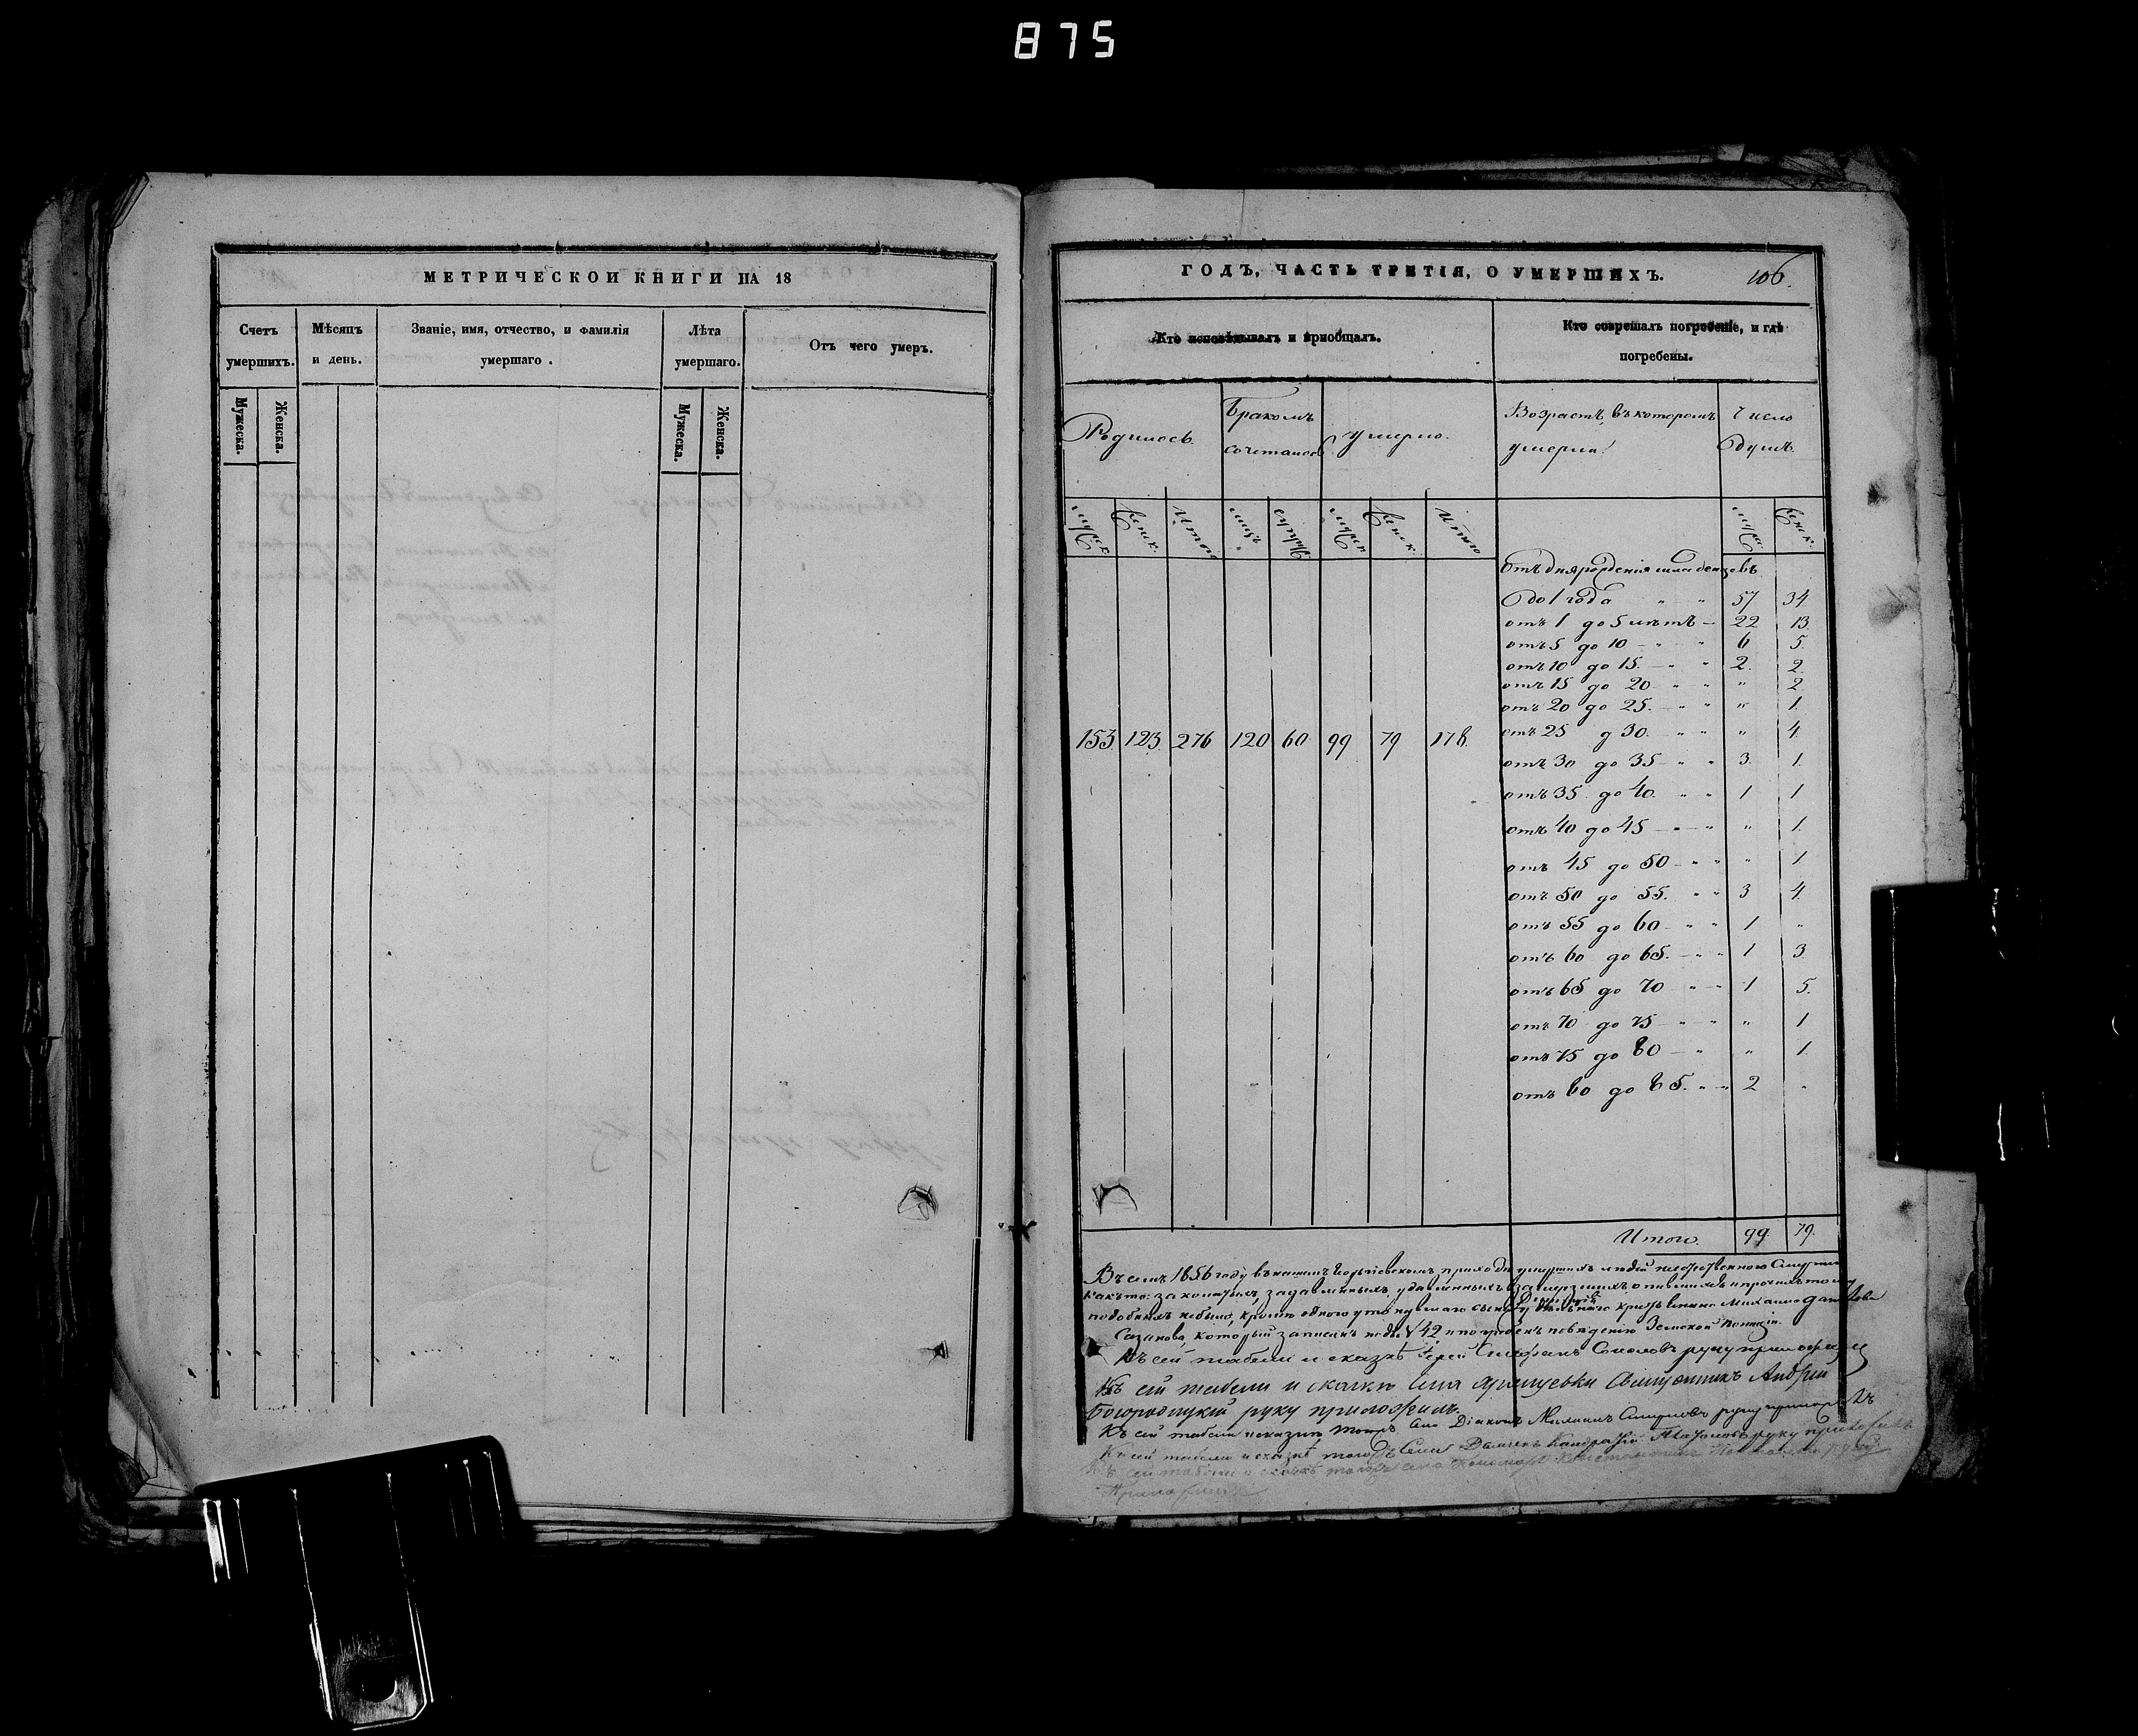 875
МЕТРИЧЕСКОИ КНИГИ НА 18
Счетъ умершихъ.
Мѣсяцъ и день.
Званіе, имя, отчество, и фамилія умершаго.
Лѣта умершаго.
Отъ чего умеръ.
Мужеска.
Женска.
Мужеска.
Женска.
ГОДЪ, ЧАСТЬ ТРЕТІЯ, О УМЕРШИХЪ.
106.
Кто исповѣдывалъ и приобщалъ.
Кто совершалъ погребеніе, и гдѣ погребены.
Родилось.
Бракомъ сочеталось
Умерло.
Возрастъ, въ которомъ умерли.
Число душъ.
Мужск. Женск. Итого Женск. Итого
Женск.
153 123. 276 120 60 99 79 178.
Отъ дня рожденія младенцевъ
до 1 года " " 57 34
отъ 1 до 5 лѣтъ — 22 13.
отъ 5 до 10 — " " 6 5.
отъ 10 до 15. — " " 2. 2.
отъ 15 до 20 — " " " 2.
отъ 20 до 25. — " " " 1.
отъ 25 д 30. " " " 4.
отъ 30 до 35 — " " 3. 1.
отъ 35 до 40. " " 1 1
отъ 40 до 45 — " — " " 1.
отъ 45 до 50 — " " " 1
отъ 50 до 55. " " 3 4.
отъ 55 до 60 — " " 1 "
отъ 60 до 65. — " " 1 3.
отъ 65 до 70 " — " 1 5.
отъ 70 до 75 — " — " " 1
отъ 75 до 80 — " " 1.
отъ 80 до 85. " — " 2 "
Итого. 99 79.
Въ семъ 1856 году въ нашемъ приходѣ умершихъ людей
какъ то: задавленныхъ, удавленныхъ, замерзшихъ, опившихся и прочихъ тому
подобныхъ небыло, кромѣ одного утонувшаго сына Михаила
Сазанова, который записанъ подъ № 42 и погребенъ Земской Полиціи.
Къ сей табели и сказкѣ Іерей Стефанъ Соколовъ руку приложилъ
Къ сей табели и сказкѣ села Священникъ Андрей
Богородицкій руку приложилъ.
Къ сей табели и сказкѣ тогожъ села Діаконъ Смирновъ руку приложилъ
Къ сей табели и сказкѣ тогожъ Села Дьячекъ руку приложилъ
Къ сей табели и сказкѣ тогожъ села Пономарь руку
Приложилъ